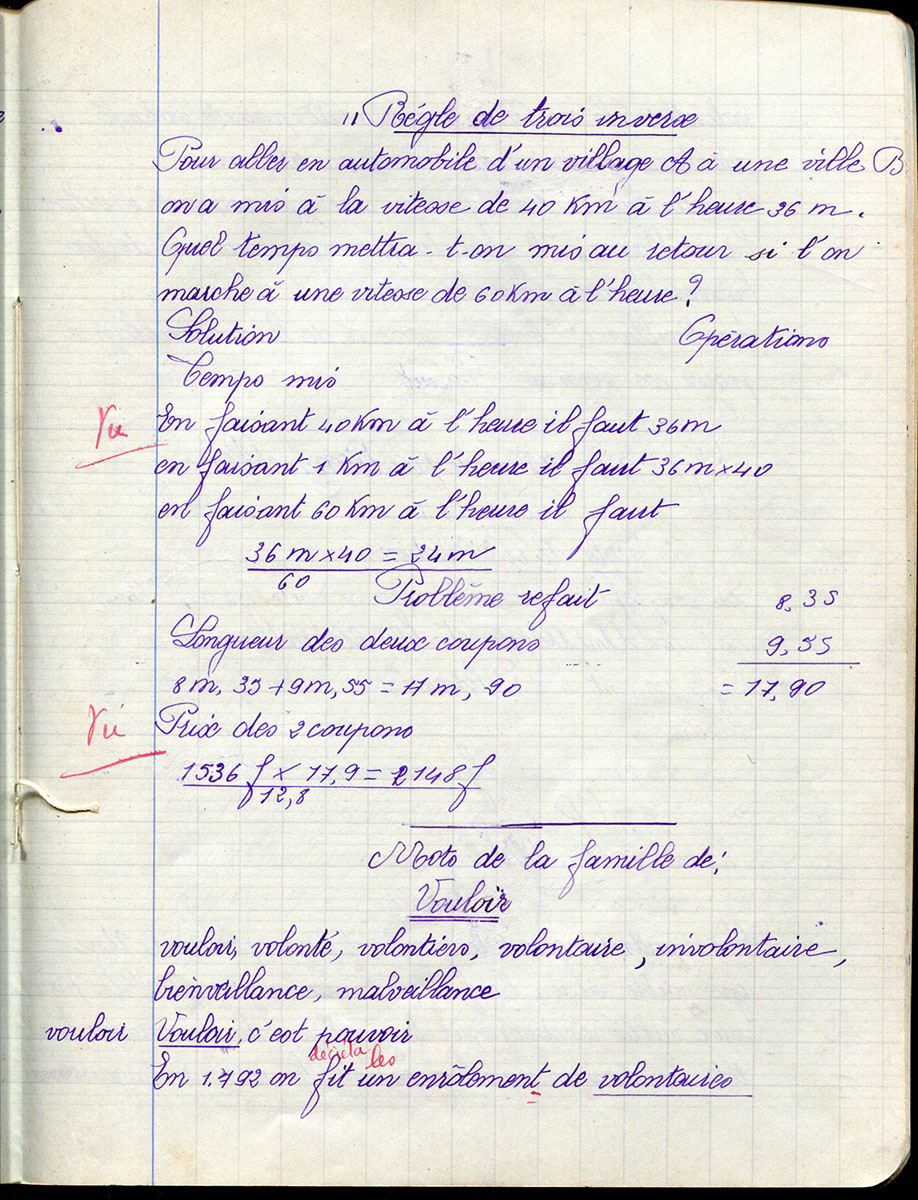 " Régle de trois inverse
Pour aller en automobile d'un village A à une ville B
on a mis à la vitesse de 40 Km à l'heure 36 m.
Quel temps mettra-t-on mis au retour si l'on
marche à une vitesse de 60 Km à l'heure ?
Solution Opérations
Temps mis
Vu En faisant 40 Km à l'heure il faut 36 m
en faisant 1 Km à l'heure il faut 36 m × 40
en faisant 60 Km à l'heure il faut
36 m × 40 = 24 m
60
Problême refait 8,35
Longueur des deux coupons 9,55
8 m, 35 + 9 m, 55 = 17 m, 90 = 17,90
Vu Prix des 2 coupons
1536 f × 17,9 = 2148 f
12,8
Mots de la famille de :
Vouloir
vouloir, volonté, volontiers, volontaire, involontaire,
bienveillance, malveillance
vouloir Vouloir, c'est pouvoir
décida les
En 1.792 on fit un enrôlement de volontaires